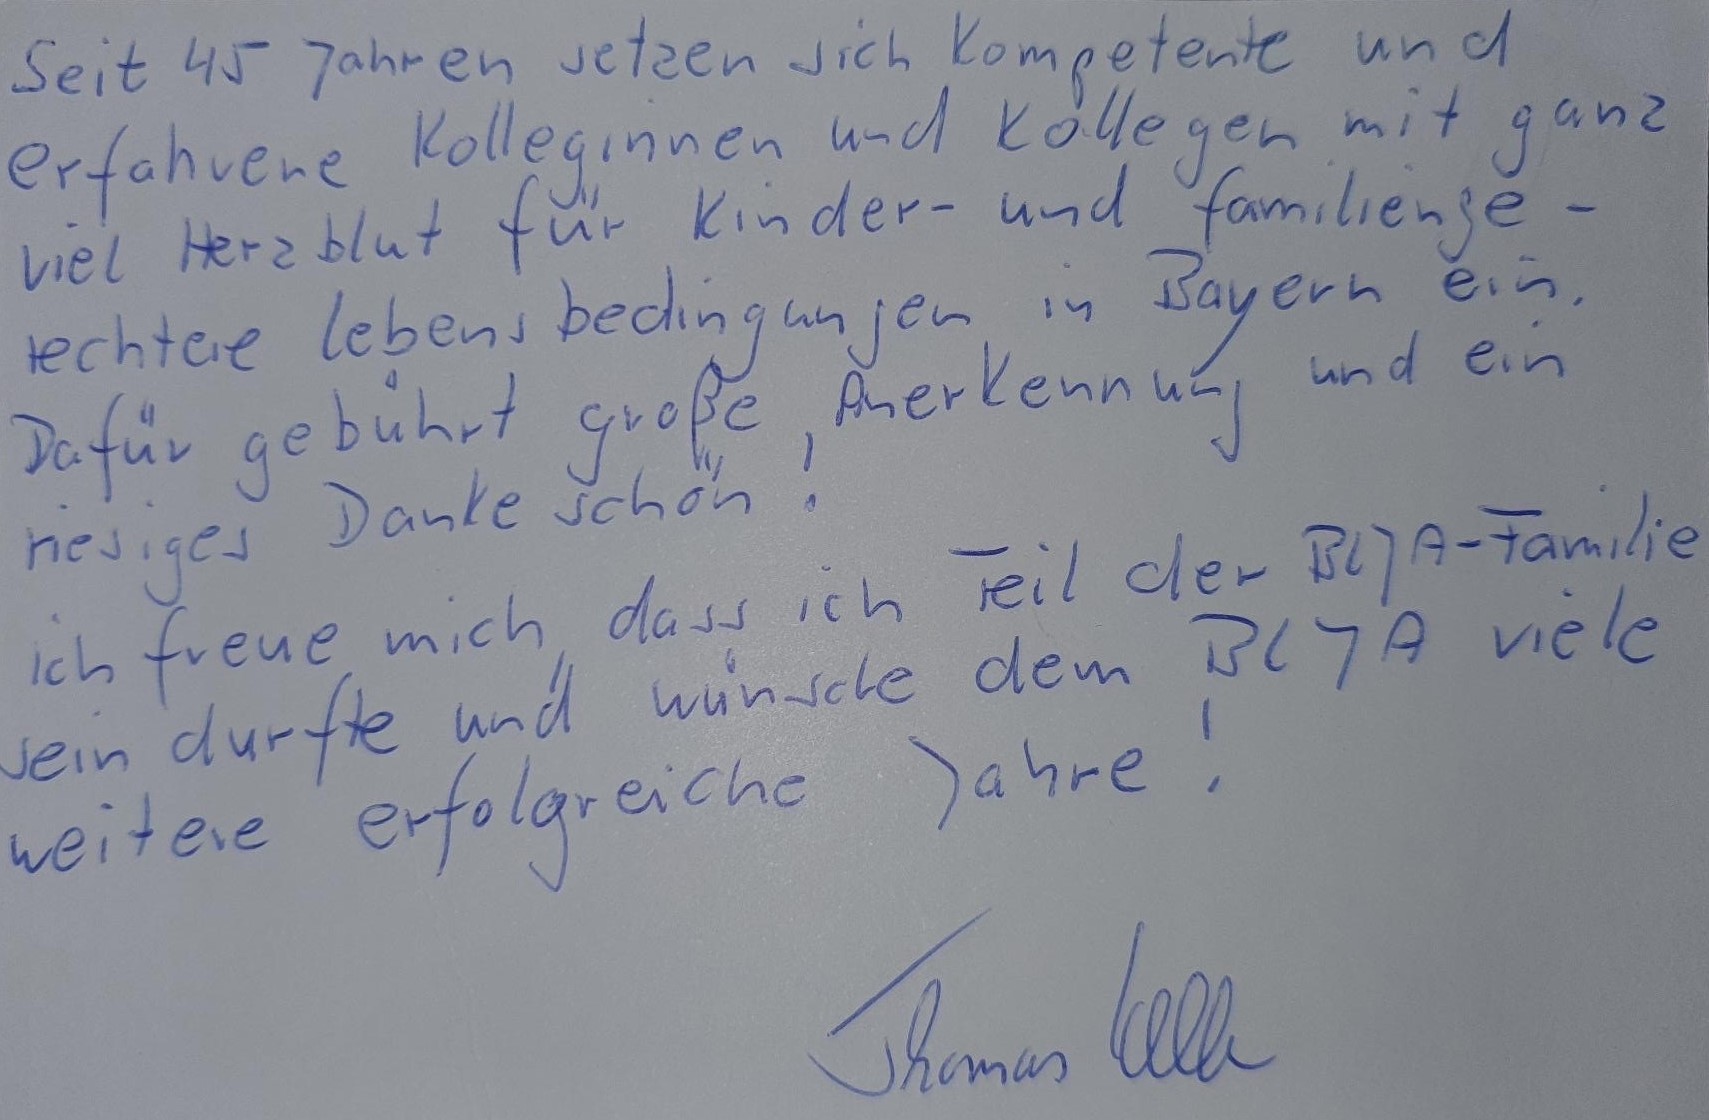 Seit 45 Jahren setzen sich kompetente und
erfahrene Kolleginnen und Kollegen mit ganz
viel Herzblut für Kinder- und familienge-
rechtere Lebensbedingungen in Bayern ein.
Dafür gebührt große Anerkennung und ein
riesiges Dankeschön!
ich freue mich, dass ich Teil der BLJA-Familie
sein durfte und wünsche dem BLJA viele
weitere erfolgreiche Jahre!
Thomas